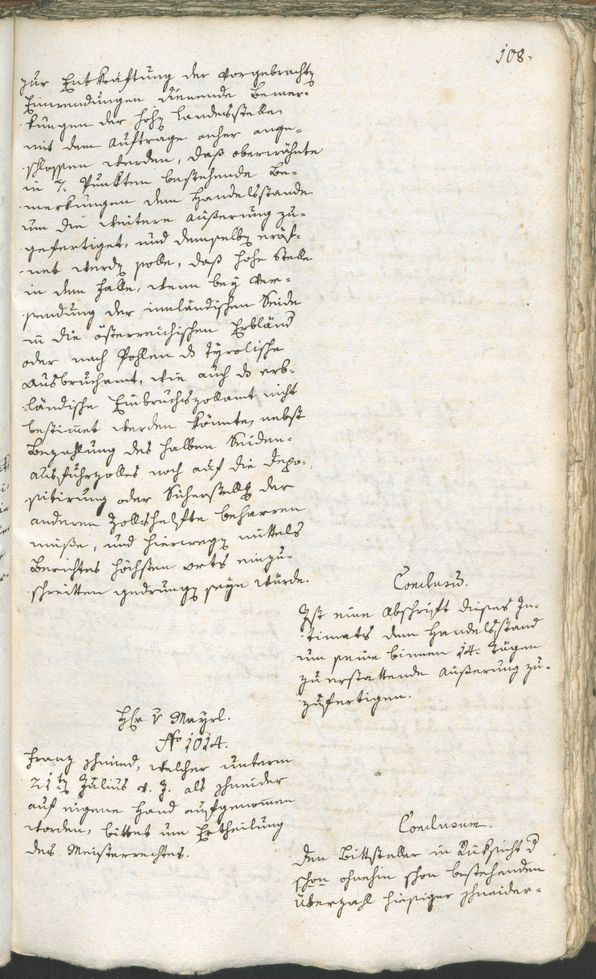 108.
zur Entkräftung der vorgebrachten
Einwendungen dienende Bemer-
kungen der hohen Landesstelle
mit dem Auftrage anher ange-
schlossen werden, daß oberwähnte
in 7. Punkten bestehende Be-
merkungen dem Handelsstande
um die weitere Äußerung zu-
gefertiget, und demselben eröf-
net werden solle, daß hohe Stelle
in dem Falle, wenn bey Ver-
sendung der innländischen Seide
in die österreichischen Erbländ
oder nach Pohlen d tyrolische
Ausbruchamt, wie auch d erb-
ländische Einbruchszollamt nicht
bestimmet werden könnte, nebst
Bezahlung des halben Seiden-
ausfuhrzolles noch auf die Depo-
sitirung oder Sicherstellg der
anderen Zollshelfte beharren
müße, und hierwegen mittels
Berichtes höchsten orts einzu-
schreitten gedrungen seyn würde.
Conclusum.
Ist eine Abschrift dieses In-
timats dem Handelsstand
um seine binnen 14. Tägen
zu erstattende Äußerung zu-
zufertigen.
Hr v Mayrl.
No 1014.
Franz Schmied, welcher unterm
21ten Julius d. J. als Schneider
auf eigene Hand aufgenommen
worden, bittet um Ertheilung
des Meisterrechtes.
Conclusum.
Den Bittsteller in Rücksicht d
schon ohnehin schon bestehenden
Überzahl hiesiger Schneider-